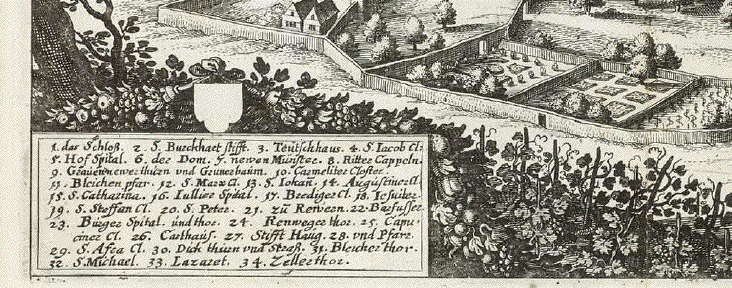 1. das Schloß. 2. S. Burckhart stifft. 3. Teutschhaus. 4. S. Iacob Cl:
5. Hof Spital. 6. der Dom. 7. newen Münster. 8. Ritter Cappeln.
9. und Grunerbaum. 10. Carmeliter Closter.
11. Bleichen pfar. 12. S. Marx Cl. 13. S. Iohan. 14. Augustiner Cl.
15. S. Catharina. 16. Iulier Spital. 17. Brediger Cl. 18. Iesuiter.
19. S. Steffan Cl. 20. S. Peter. 21. zü Rewern. 22. Barfusser.
23. Burger Spital. und thor. 24. Rennweger thor. 25. Capu:
ciner Cl. 26. Carthaus. 27. Stifft Haug. 28. und Pfarr.
29. S. Afra Cl. 30. Dick thurn vnd Straß. 31. Bleicher thor.
32. S. Michael. 33. Lazaret. 34. Zeller thor.